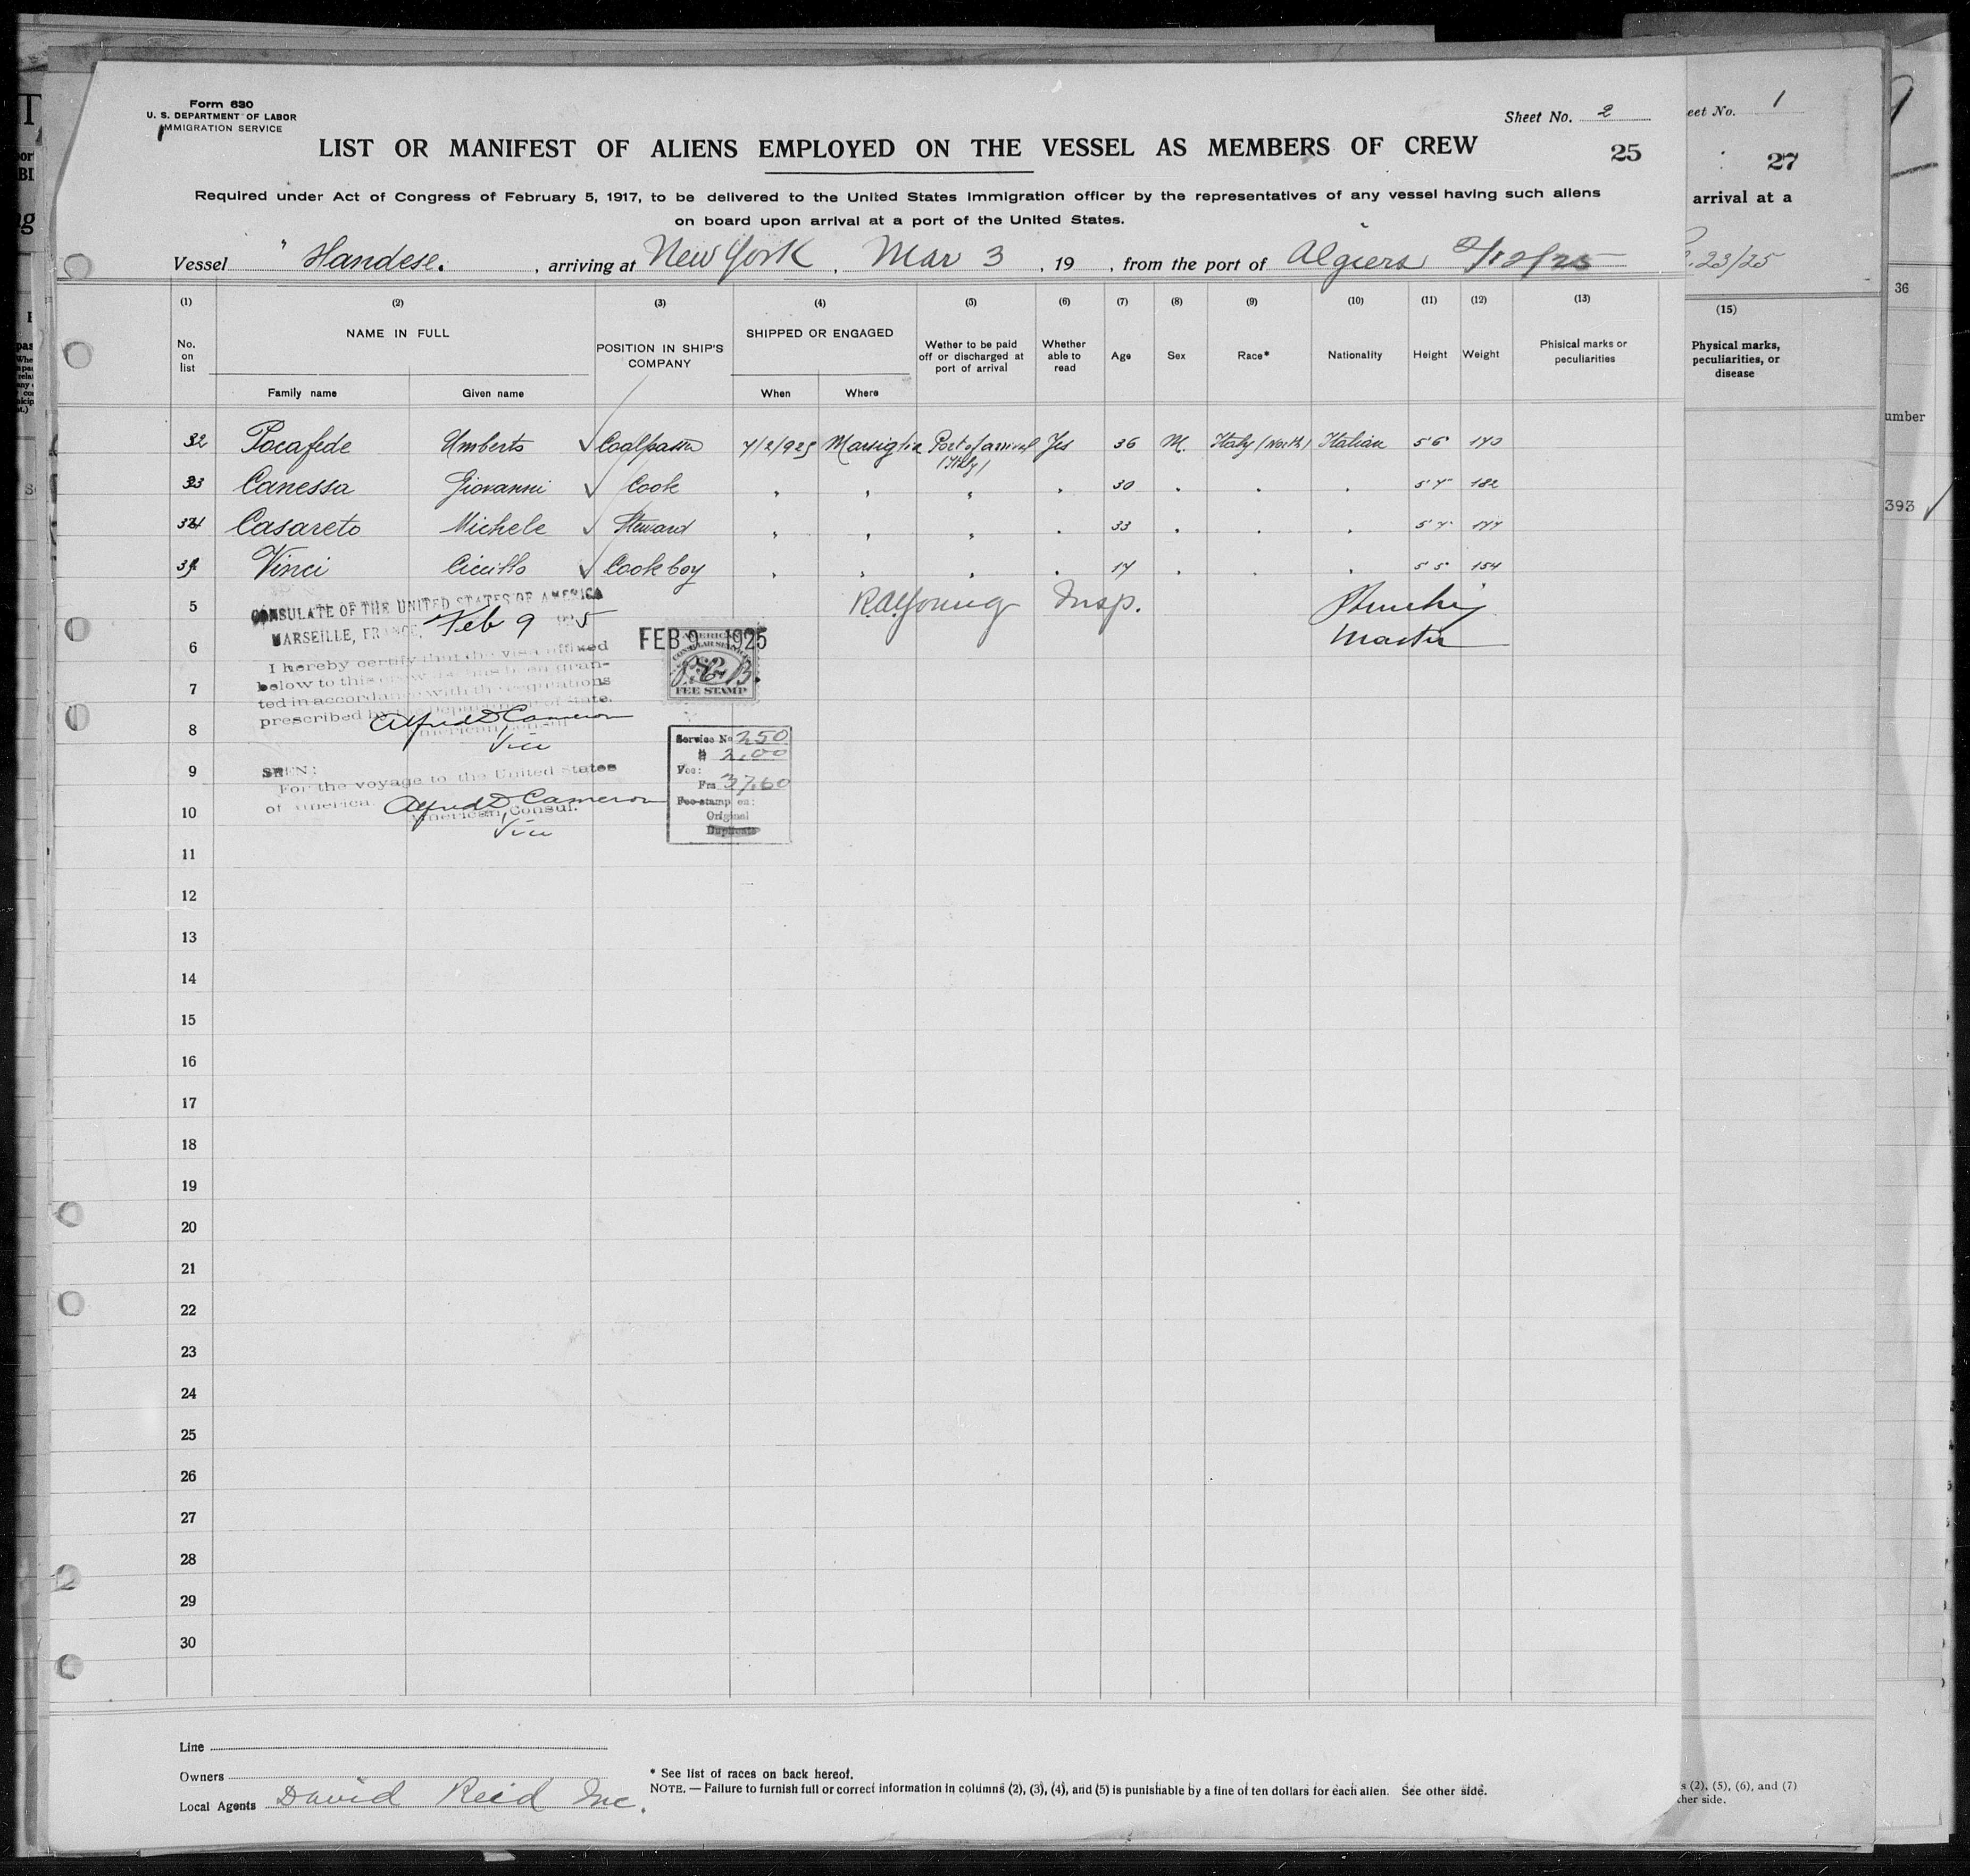 Form 630
U. S. DEPARTMENT OF LABOR
IMMIGRATION SERVICE
Sheet No. 2
LIST OR MANIFEST OF ALIENS EMPLOYED ON THE VESSEL AS MEMBERS OF CREW
25
Required under Act of Congress of February 5, 1917, to be delivered to the United States Immigration officer by the representatives of any vessel having such aliens
on board upon arrival at a port of the United States.
Vessel "Handese. , arriving at New York , Mar 3 , 19 , from the port of Algiers 2/12/25
(1) (2) (3) (4) (5) (6) (7) (8) (9) (10) (11) (12) (13)
No. on list NAME IN FULL POSITION IN SHIP'S COMPANY SHIPPED OR ENGAGED Wether to be paid off or discharged at port of arrival Whether able to read Age Sex Race* Nationality Height Weight Phisical marks or peculiarities
Family name Given name When Where
32 Pocafede Umberto Coalpasser 7/2/925 Marsiglia Port of arrival (Italy) Yes 36 M. Italy (North) Italian 5' 6" 170
33 Canessa Giovanni Cook " " " " 30 " " " 5' 7" 182
34 Casareto Michele Steward " " " " 33 " " " 5' 7" 177
35 Vinci Ciccillo Cook boy " " " " 17 " " " 5' 5" 154
5 CONSULATE OF THE UNITED STATES OF AMERICA
MARSEILLE, FRANCE, Feb 9 1925
R A Young Insp.
Master
6 I hereby certify that the visa affixed
7 below to this crew list has been gran-
ted in accordance with the regulations
prescribed by the Department of State.
8 Alfred D Cameron
American Consul
Vice
FEB 9 1925
AMERICAN
CONSULAR SERVICE
$2
FEE STAMP
9 SEEN:
For the voyage to the United States
of America.
10 Alfred D Cameron
American Consul.
Vice
Service No 250
# 2.00
Fee:
Frs 37.60
Fee stamp on:
Original
Duplicate
11
12
13
14
15
16
17
18
19
20
21
22
23
24
25
26
27
28
29
30
Line
Owners
Local Agents David Reid Inc.
* See list of races on back hereof.
NOTE. — Failure to furnish full or correct information in columns (2), (3), (4), and (5) is punishable by a fine of ten dollars for each alien. See other side.
eet No. 1
27
arrival at a
23/25
(15)
Physical marks,
peculiarities, or
disease
s (2), (5), (6), and (7)
her side.
36
umber
393